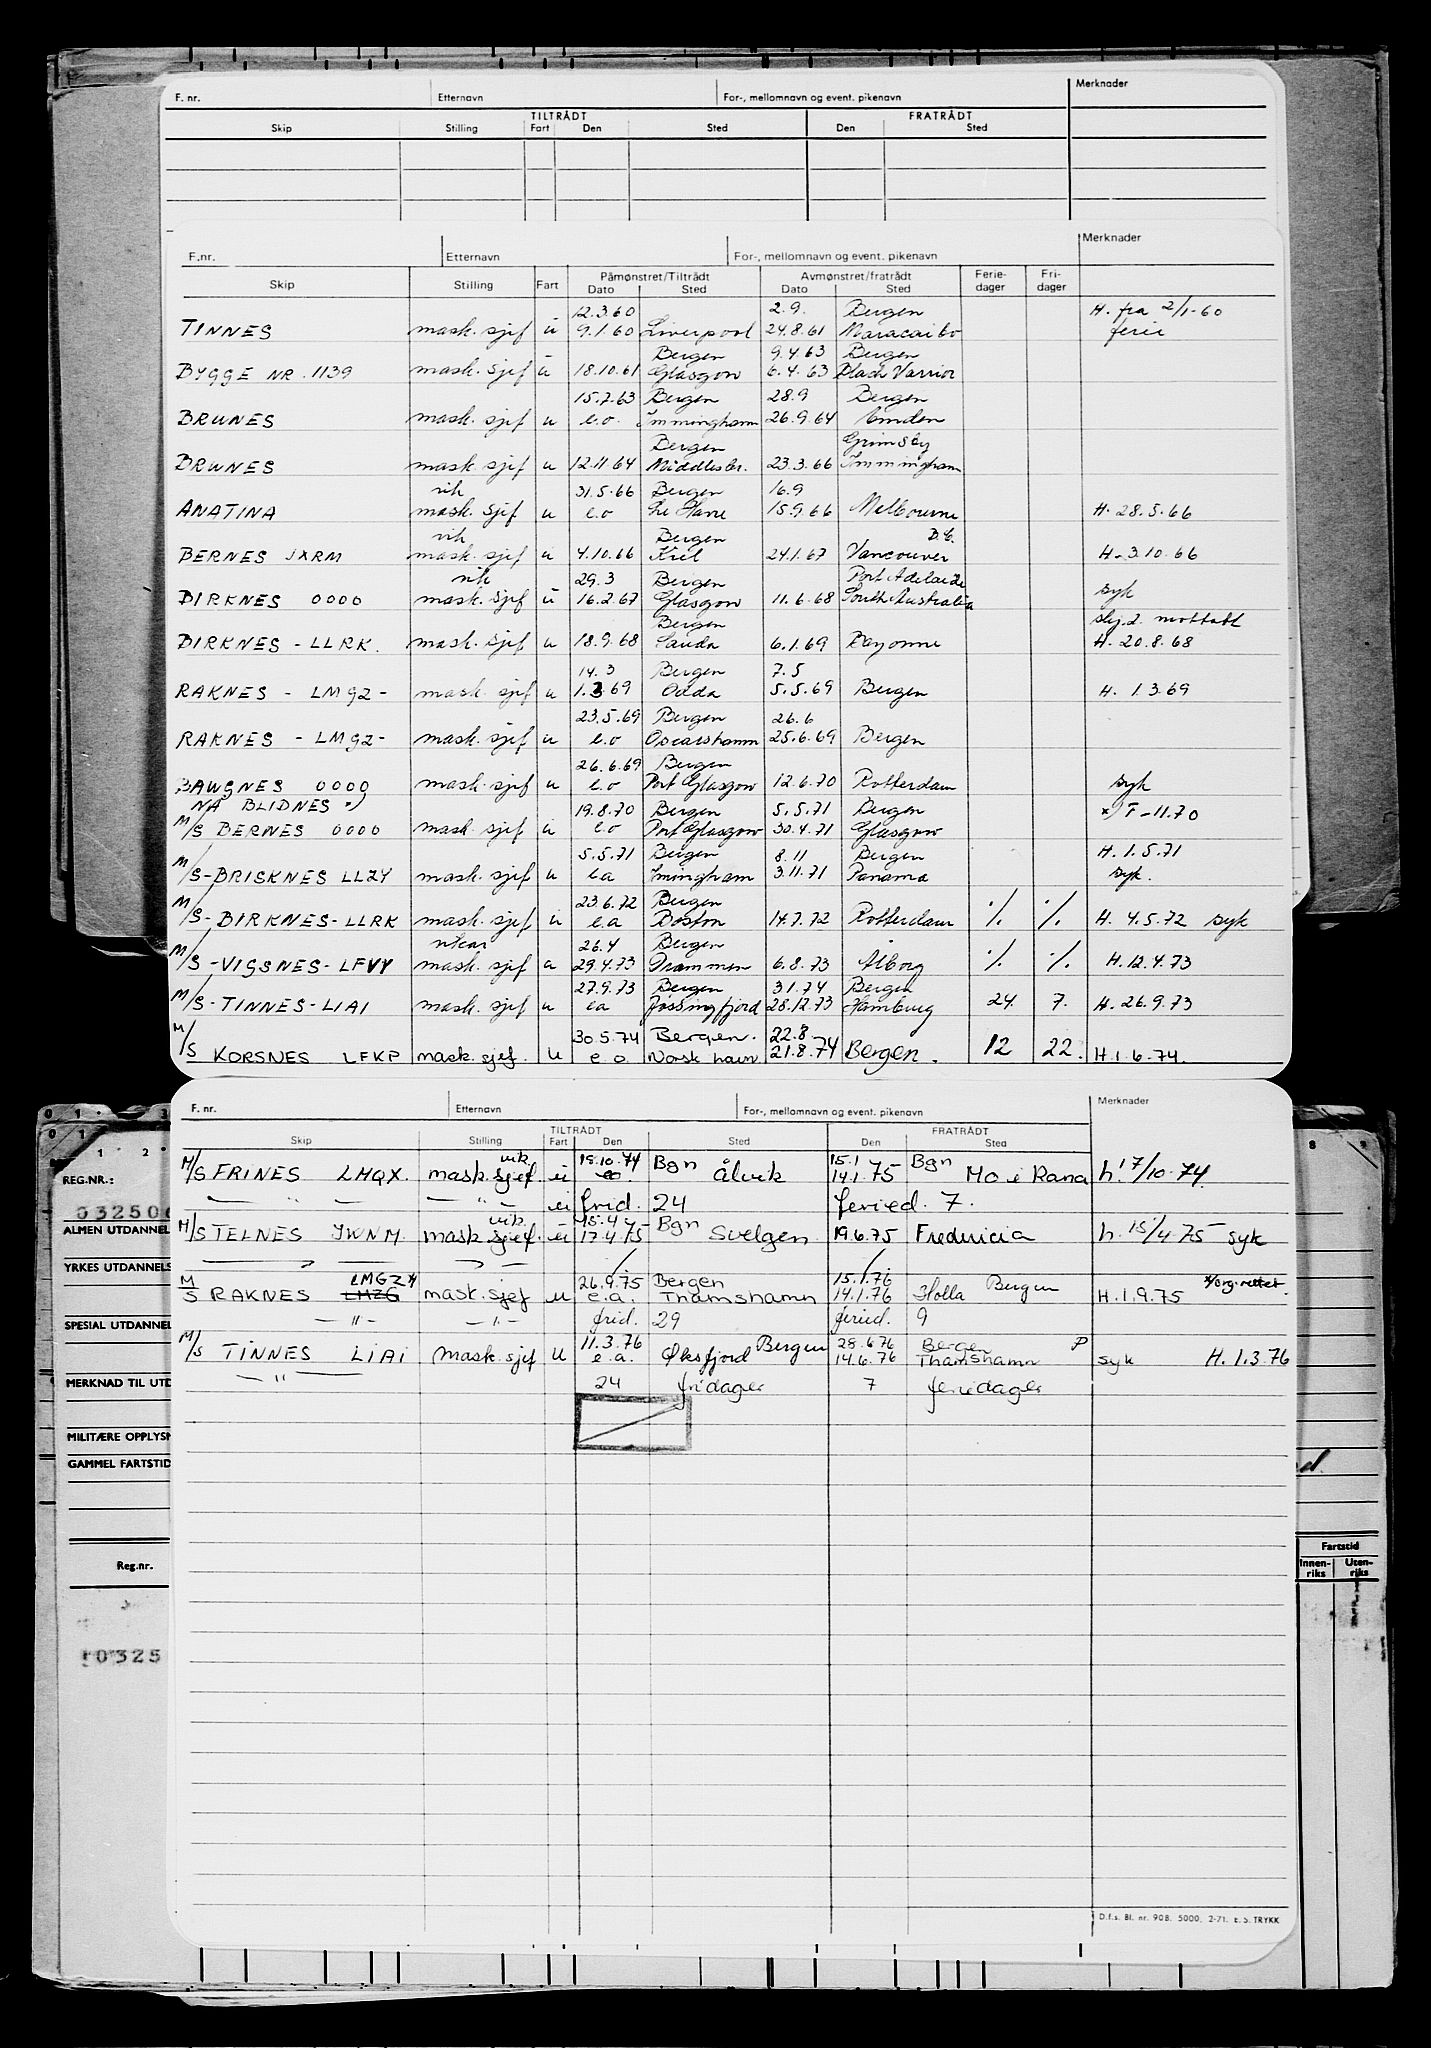 F. nr. Etternavn For-, mellomnavn og event. pikenavn Merknader
TILTRÅDT FRATRÅDT
Skip Stilling Fart Den Sted Den Sted
F.nr. Etternavn For-, mellomnavn og event. pikenavn Merknader
Påmønstret/Tiltrådt Avmønstret/fratrådt Ferie- Fri-
Skip Stilling Fart Dato Sted Dato Sted dager dager
12.3.60 2.9. Bergen H. fra 2/1-60
TINNES mask. sjef u 9.1.60 Liverpool 24.8.61 Maracaibo ferie
Bergen 9.4.63 Bergen
BYGGE NR. 1139 mask. sjef u 18.10.61 Glasgow 6.4.63 Black Varrior
15.7.63 Bergen 28.9 Bergen
BRUNES mask. sjef u e.o. Imminghamn 26.9.64 Emden
Bergen Grimsby
BRUNES mask. sjef u 12.11.64 Middlesbr. 23.3.66 Immingham
vik 31.5.66 Bergen 16.9
ANATINA mask. sjef u e.o Le Havre 15.9.66 Melbourne H. 28.5.66
vik Bergen B.C.
BERNES JXRM mask. sjef u 4.10.66 Kiel 24.1.67 Vancouver H-3.10.66
vik 29.3 Bergen Port Adelaide
BIRKNES 0000 mask. sjef u 16.2.67 Glasgow 11.6.68 South Australia syk
Bergen skj.2. mottatt
BIRKNES - LLRK. mask. sjef u 18.9.68 Sauda 6.1.69 Bayonne H. 20.8.68
14.3 Bergen 7.5
RAKNES - LMGZ - mask. sjef u 1.3.69 Odda 5.5.69 Bergen H. 1.3.69
23.5.69 Bergen 26.6
RAKNES - LMGZ - mask. sjef u e.o Oscarshamn 25.6.69 Bergen
26.6.69 Bergen
BAUGNES 0000 mask. sjef u e.o Port Glasgow 12.6.70 Rotterdam syk
NÅ BLIDNES x) 19.8.70 Bergen 5.5.71 Bergen x) T-11.70
M/S BERNES 0000 mask. sjef u e.o Port Glasgow 30.4.71 Glasgow
5.5.71 Bergen 8.11 Bergen H. 1.5.71
M/S-BRISKNES LLZY mask. sjef u e.a Imingham 3.11.71 Panama syk.
23.6.72 Bergen
M/S-BIRKNES-LLRK mask. sjef u e.a Boston 14.7.72 Rotterdam % % H. 4.5.72 syk
vikar 26.4 Bergen
M/S-VIGSNES-LFVY mask. sjef u 29.4.73 Drammen 6.8.73 Ålborg % % H.12.4.73
27.9.73 Bergen 3.1.74 Bergen
M/S-TINNES-LIAI mask. sjef u ea Jøssingfjord 28.12.73 Hamburg 24 7. H. 26.9.73
30.5.74 Bergen. 22.8
M/S KORSNES LFKP mask. sjef. u e.o. Norsk havn 21.8.74 Bergen. 12 22. H.1.6.74.
F. nr. Etternavn For-, mellomnavn og event. pikenavn Merknader
TILTRÅDT FRATRÅDT
Skip Stilling Fart Den Sted Den Sted
vik. 18.10.74 Bgn 15.1 Bgn
M/S FRINES LHQX. mask. sjef. u eo Ålvik 14.1.75 Mo i Rana h. 17/10-74.
— " — — " — u frid. 24 feried. 7.
vik. 15.4 Bgn
M/S TELNES JWNM. mask sjef. u 17.4.75 Svelgen 19.6.75 Fredericia h. 15/4 75 syk
LMGZ x) 26.9.75 Bergen 15.1.76 Bergen x) org. rettet
M/S RAKNES LMZG mask. sjef u e.a. Thamshamn 14.1.76 Holla H.1.9.75
— " — — " — frid. 29 feried. 9
11.3.76 Bergen 28.6.76 Bergen P
M/S TINNES LIAI mask. sjef u e.a. Øksfjord 14.6.76 Thamshamn syk H. 1.3.76
— " — 24 fridager 7 feriedager
REG.NR.:
ALMEN UTDANNEL
YRKES UTDANNELS
SPESIAL UTDANNEL
MERKNAD TIL UTD
MILITÆRE OPPLYSN
GAMMEL FARTSTID
Reg.nr.
Fartstid
Innen- riks Uten- riks
10325
D.f.s. Bl. nr. 908. 5000. 2-71. E.S. TRYKK